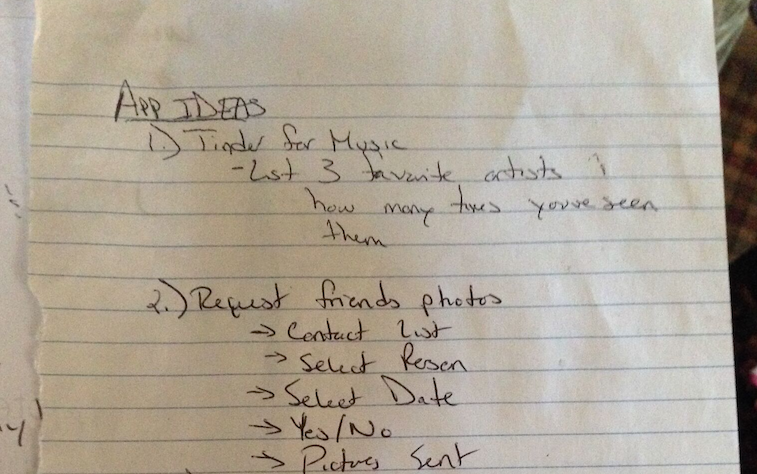 APP IDEAS
1.) Tinder for Music
-List 3 favorite artists
how many times you've seen
them
2.) Request friends photos
→ Contact List
→ Select Person
→ Select Date
→ Yes/No
→ Pictures Sent